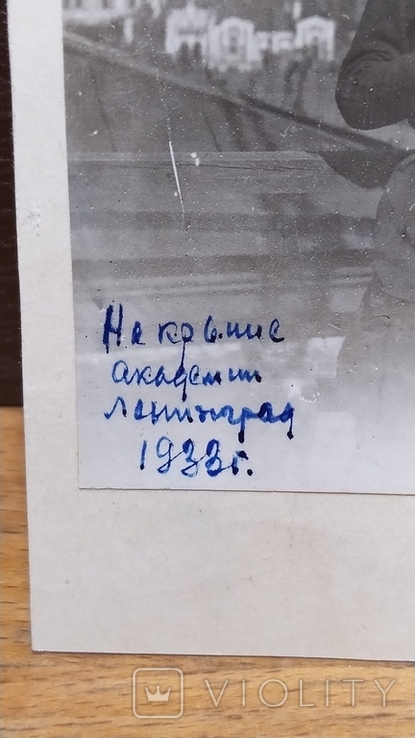 На крыше
академии
Ленинград
1933г.
VIOLITY